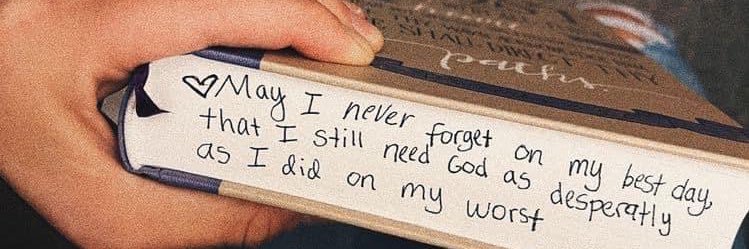 SHALL DIRECT THY
paths.
♡May I never forget on my best day,
that I still need God as desperatly
as I did on my worst